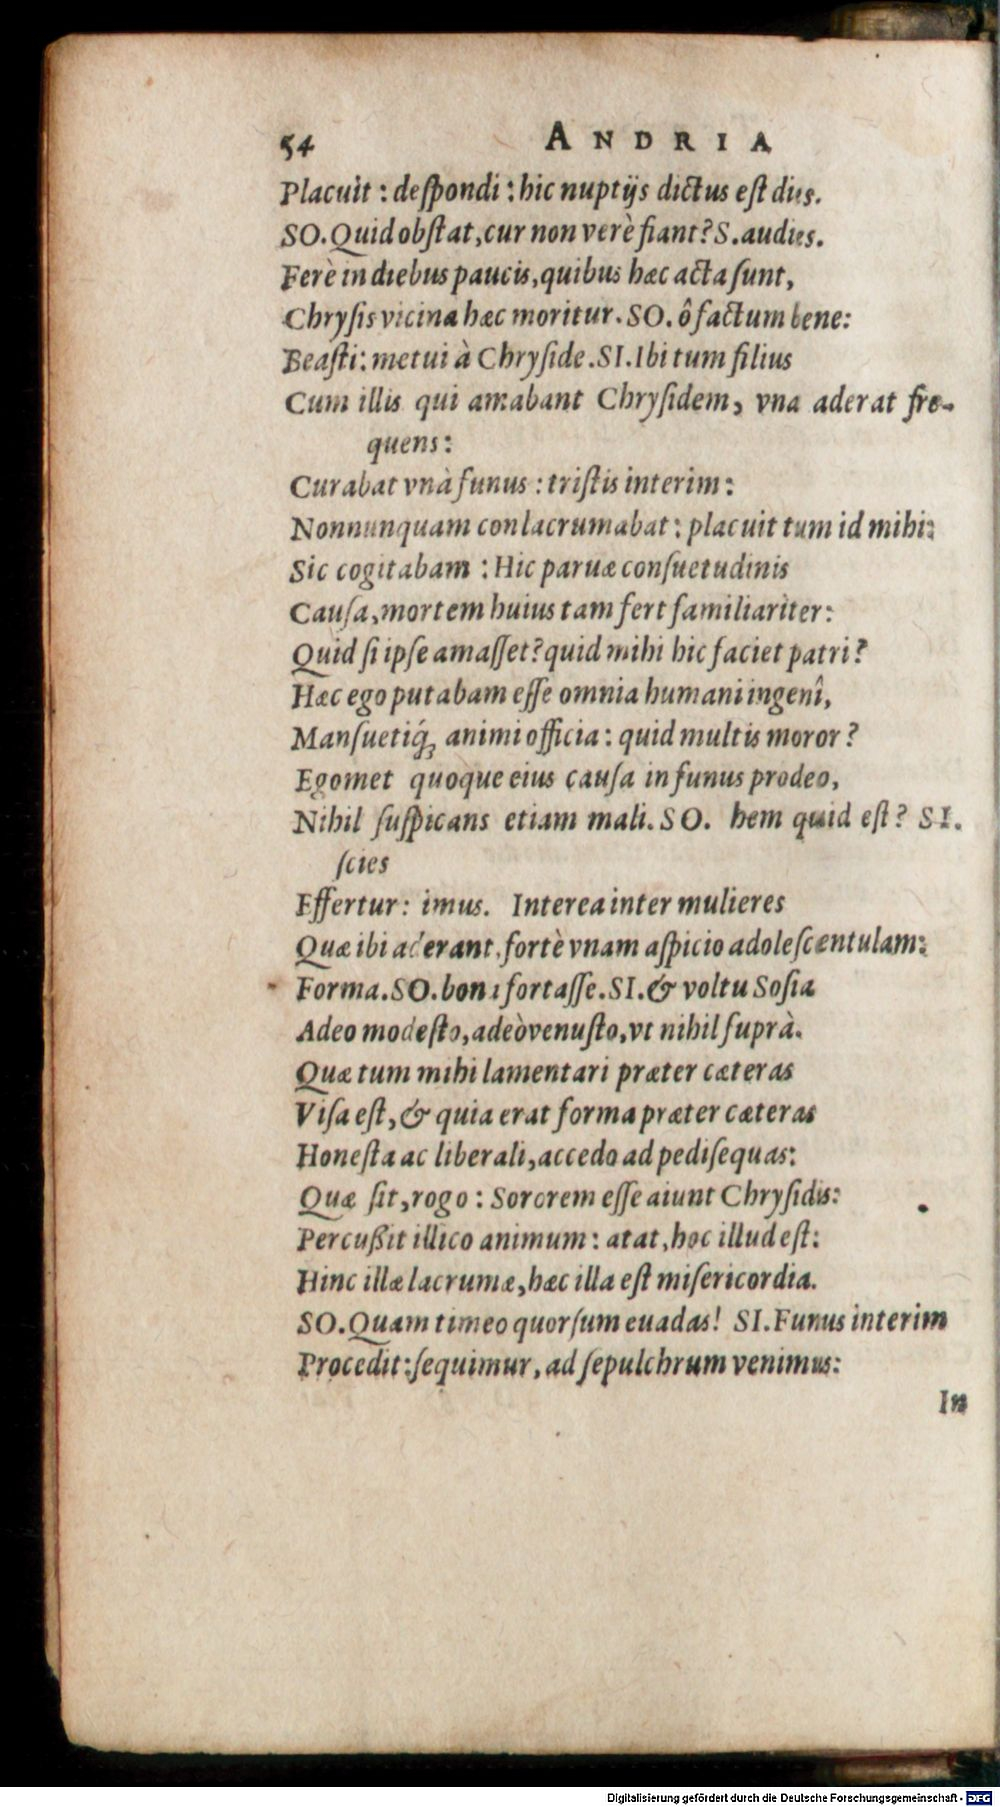 54 ANDRIA
Placuit : deſpondi : hic nuptijs dictus eſt dies.
SO. Quid obſtat, cur non verè fiant? S. audies.
Ferè in diebus paucis, quibus hæc acta ſunt,
Chryſis vicina hæc moritur. SO. ô factum bene:
Beaſti: metui à Chryſide. SI. Ibi tum filius
Cum illis qui amabant Chryſidem, vna aderat fre-
quens:
Curabat vnà funus : triſtis interim:
Nonnunquam conlacrumabat : placuit tum id mihi:
Sic cogitabam : Hic paruæ conſuetudinis
Cauſa, mortem huius tam fert familiariter:
Quid ſi ipſe amaſſet? quid mihi hic faciet patri?
Hæc ego putabam eſſe omnia humani ingenî,
Manſuetiq́; animi officia : quid multis moror?
Egomet quoque eius cauſa in funus prodeo,
Nihil ſuſpicans etiam mali. SO. hem quid eſt? SI.
ſcies
Effertur: imus. Interea inter mulieres
Quæ ibi aderant, fortè vnam aſpicio adoleſcentulam:
Forma. SO. bona fortaſſe. SI. & voltu Soſia
Adeo modeſto, adeò venuſto, vt nihil ſuprà.
Quæ tum mihi lamentari præter cæteras
Viſa eſt, & quia erat forma præter cæteras
Honeſta ac liberali, accedo ad pediſequas:
Quæ ſit, rogo : Sororem eſſe aiunt Chryſidis:
Percußit illico animum : atat, hoc illud eſt:
Hinc illæ lacrumæ, hæc illa eſt miſericordia.
SO. Quam timeo quorſum euadas! SI. Funus interim
Procedit : ſequimur, ad ſepulchrum venimus:
In
Digitalisierung gefördert durch die Deutsche Forschungsgemeinschaft - DFG